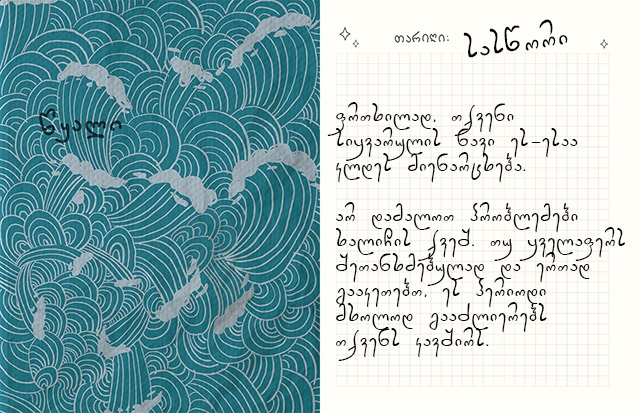 წყალი
თარიღი: სასწორი
ფრთხილად, თქვენი
სიყვარულის ნავი ეს-ესაა
კლდეს მიენარცხება.
არ დამალოთ პრობლემები
ხალიჩის ქვეშ. თუ ყველაფერს
შეთანხმებულად და ერთად
გააკეთებთ, ეს პერიოდი
მხოლოდ გააძლიერებს
თქვენს კავშირს.